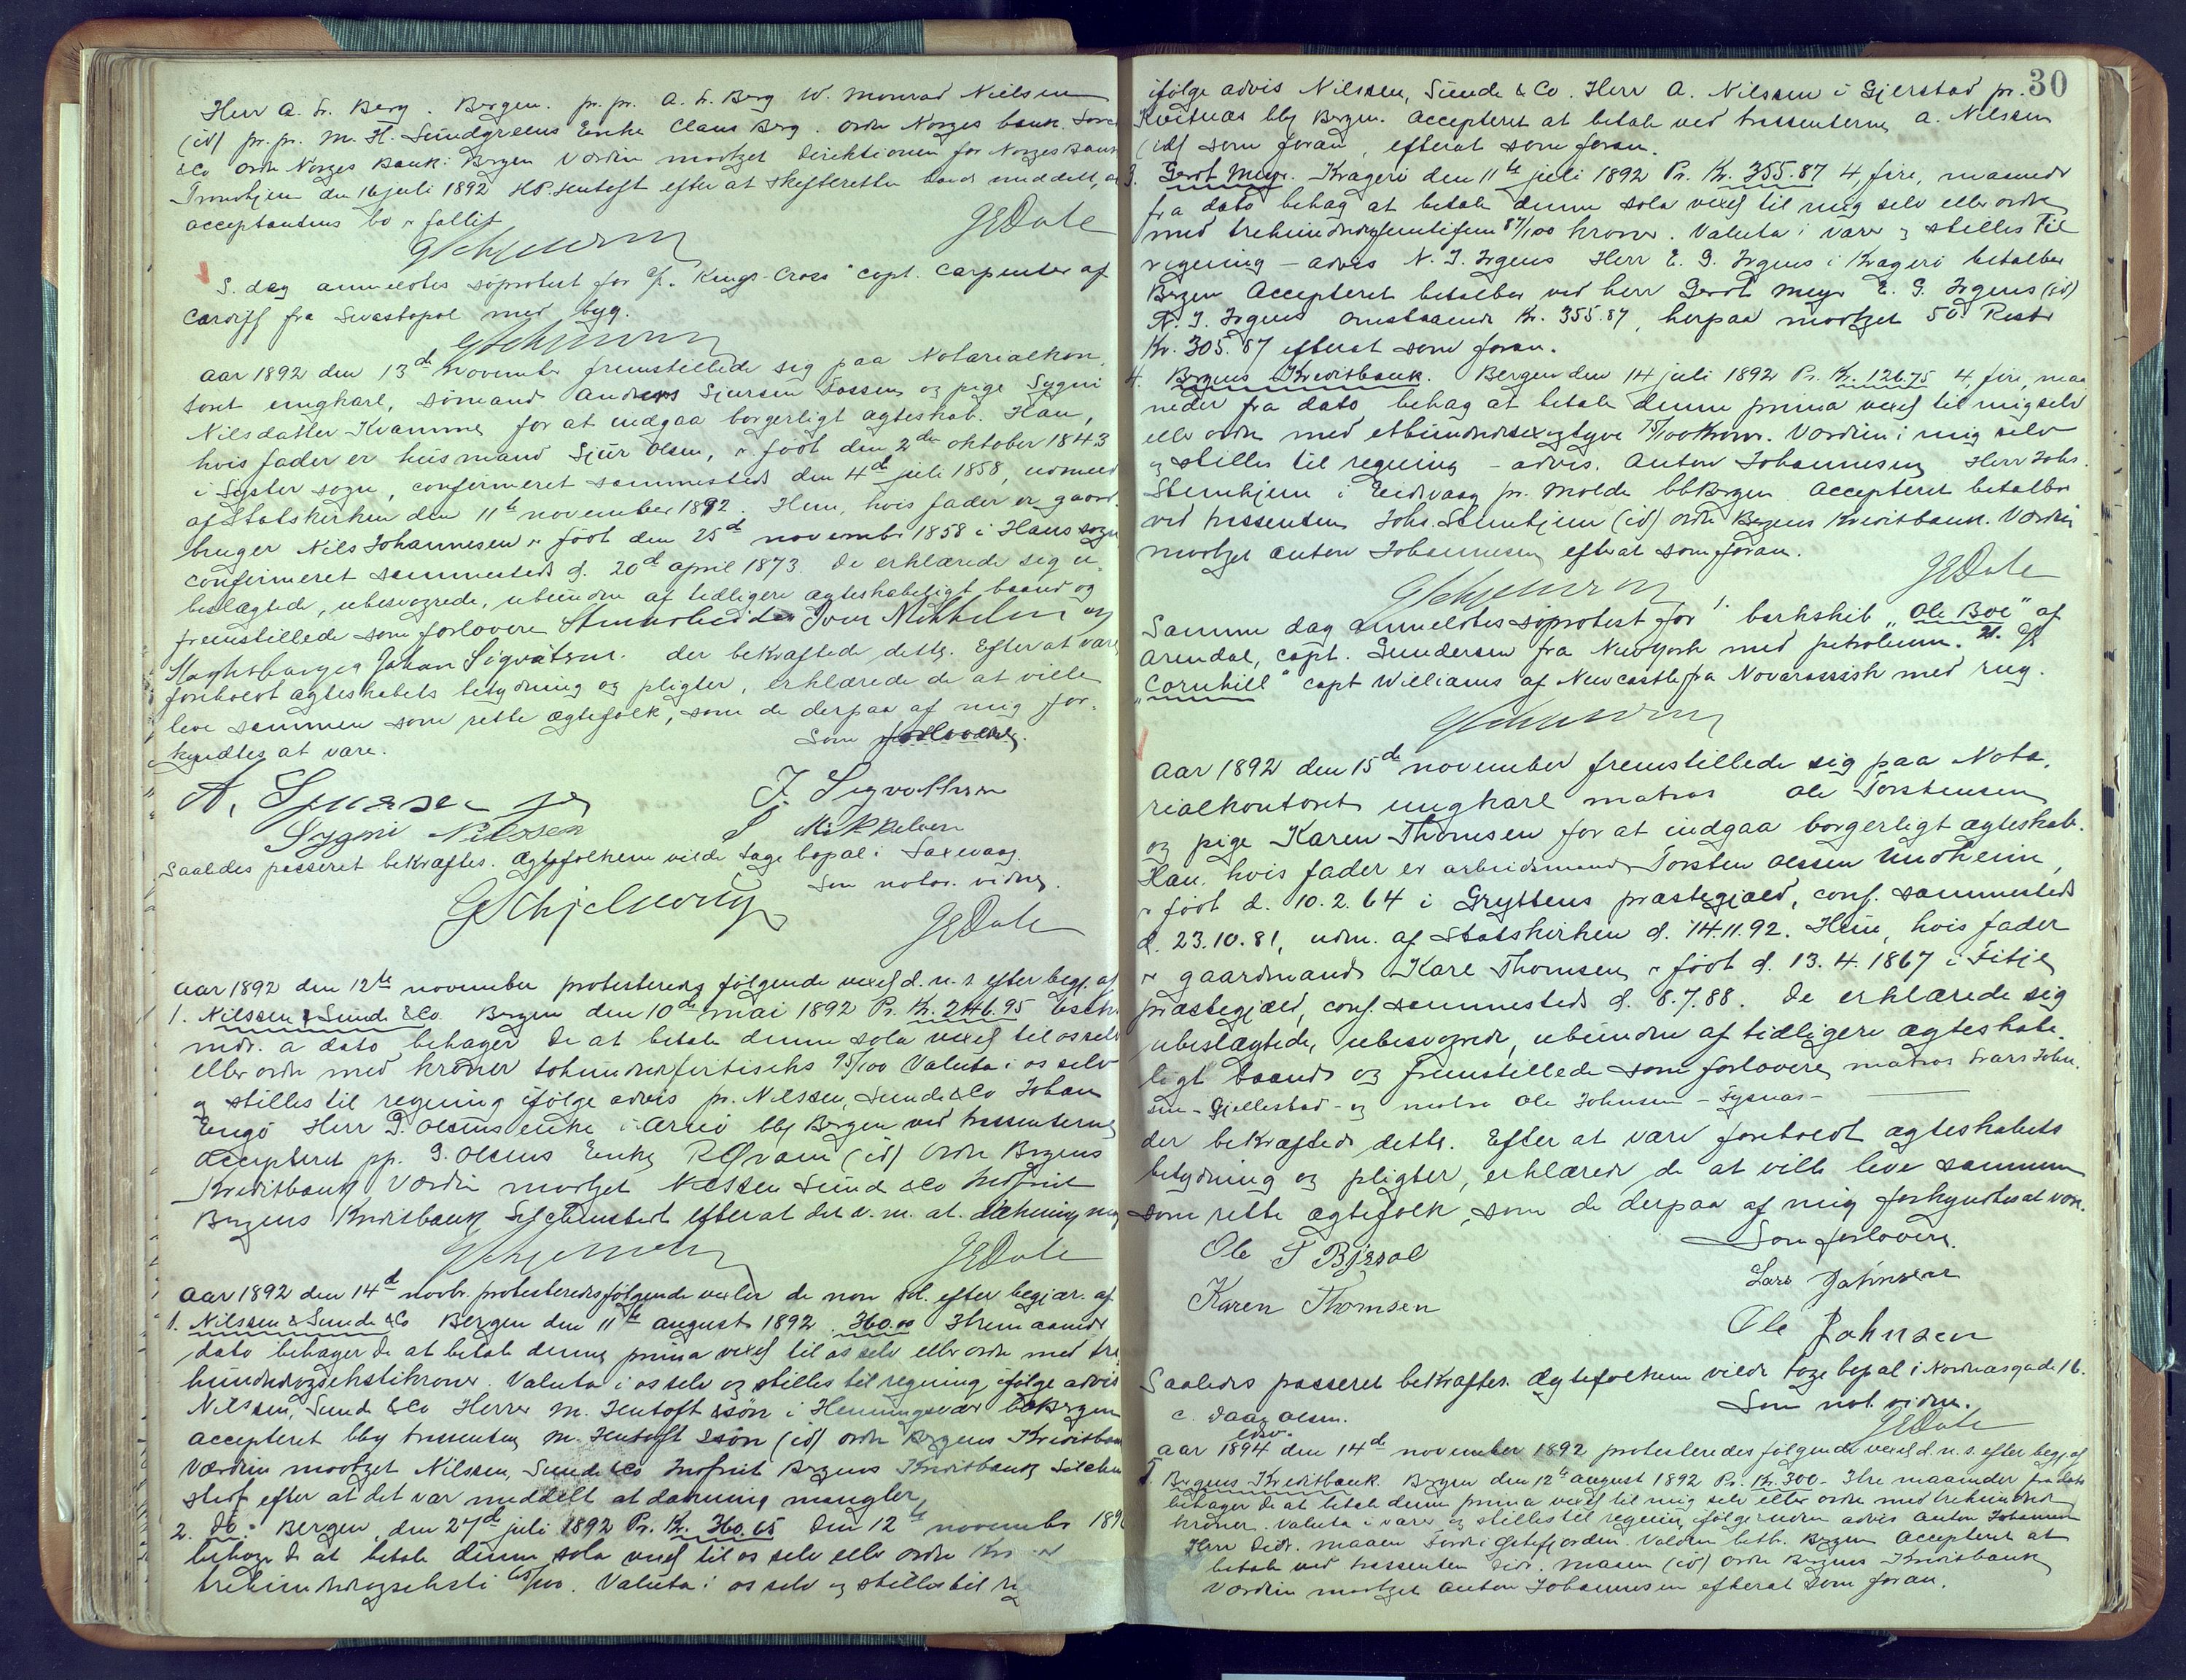 Herr A. Fr. Berg. Bergen. pr. pr. A. Fr. Berg W. Monrad Nielsen
(id) pr. pr. M. H. Lundgreens Enke Claus Berg. Ordre Norges bank.
&Co Ordre Norges Bank: Bergen Værdien modtaget Direktionen for Norges Bank
Trondhjem den 16 juli 1892 efter at skifteretten havde meddelt, at
acceptantens bo er fallit
GSchjelderup JEDale
S. dag anmeldtes søprotest for "Kings-Cross" capt. Carpenter af
Cardiff fra Sevastopol med byg.
GSchjelderup
Aar 1892 den 13de november fremstillede sig paa Notarialkon
toret ungkarl, sømand Anders Sjursen Fossen og pige Sygni
Nilsdatter Kvamme for at indgaa borgerligt ægteskab. Han,
hvis fader er husmand Sjur Olsen, er født den 2den oktober 1843
i Lyster sogn, confirmeret sammesteds den 4de juli 1858, udmeldt
af Statskirken den 11te november 1892. Hun, hvis fader er gaard
bruger Nils Johannesen er født den 25de november 1858 i Haus sogn
confirmeret sammesteds d. 20de april 1873. De erklærede sig u-
beslægtede, ubesvogrede, ubundne af tidligere ægteskabeligt baand og
fremstillede som forlovere Stenarbeider Iver Mikkelsen og
Johan Sigvatsen. der bekræftede dette. Efter at være
foreholdt ægteskabets betydning og pligter, erklærede de at ville
leve sammen som rette ægtefolk, som de derpaa af mig for-
kyndtes at være.
Som forlovere.
A. Sjursen J. Sigvattsen
Sygni Nilssen I Mikkelsen
Saaledes passeret bekræftes. Ægtefolkene vilde tage bopæl i Saxevaag.
Som notar. vidne.
GSchjelderup JEDale
Aar 1892 den 12te november protesteredes følgende vexel d. n. s. efter begj. af
1. Nilssen, Sunde &Co. Bergen den 10de mai 1892 Pr. Kr. 246.95
mdr. a dato behager De at betale denne sola vexel til os selv
eller ordre med kroner tohundredefirtiseks 95/100 Valuta i os selv
og stilles til regning ifølge advis pr. Nilssen, Sunde &Co Johan
Engø Herr G. Olsens enke i bbg Bergen ved trassenterne
Accepteret pp. G. Olsens Enke (id) Ordre Bergens
Kreditbank Værdien modtaget Nilssen Sunde &Co Indfriet
Bergens Kreditbank efterat det v. m. at dækning mgl
GSchjelderup JEDale
Aar 1892 den 14de novbr. protesteredes følgende vexler de non sol. efter begjær. af
1. Nilssen & Sunde &Co Bergen den 11te august 1892 360.00 3tre maaneder
dato behager De at betale denne prima vexel til os selv eller ordre med tre
hundredeogsekstikroner. Valuta i os selv og stilles til regning ifølge advis
Nilssen, Sunde &Co Herrer M. Hentoft &søn i Henningsvær bbBergen
accepteret bbg trassenten M. Hentoft &søn (id) ordre Bergens Kreditbank
Værdien modtaget Nilssen, Sunde &Co Indfriet Bergens Kreditbank
efter at det var meddelt at dækning mangler,
2. Do: Bergen, den 27de juli 1892 Pr. Kr. 360.65 Den 12te november 1892
behage De at betale denne sola vexel til os selv eller ordre Kr
trehundredeogseksti 65/100. Valuta i os selv og stilles til
30
ifølge advis Nilssen, Sunde & Co. Herr A. Nilssen i Gjerstad pr.
Kvitnæs bbg Bergen. Accepteret at betale ved trassenterne A. Nilssen
(id) som foran, efterat som foran.
3. Gerdt Meyer. Kragerø den 11te juli 1892 Pr. Kr. 355.87 4, fire, maaneder
fra dato behag at betale denne sola vexel til mig selv eller ordre
med trehundredefemtifem 87/100 kroner. Valuta i varer og stilles til
regning – advis N. J. Irgens Herr E. G. Irgens i Kragerø betalbar
Bergen Accepteret betalbar ved herr Gerdt Meyer E. G. Irgens (id)
N. J. Irgens Omstaaende Kr. 355.87, herpaa modtaget 50. Rest
Kr. 305.87 efterat som foran.
4. Bergens Kreditbank. Bergen den 14 juli 1892 Pr. Kr. 126.75 4, fire, maa
neder fra dato behag at betale denne prima vexel til mig selv
eller ordre med ethundredesexogtyve 75/100 Kroner. Værdien i mig selv
og stilles til regning – advis. Anton Johannesen Herr Johs.
Stenhjem i Eidsvaag pr. Molde bbBergen Accepteret betalbar
ved trassenten Johs. Stenhjem (id) ordre Bergens Kreditbank. Værdien
modtaget Anton Johannesen efterat som foran.
GSchjelderup JEDale
Samme dag anmeldtes søprotest for 1. barkskib "Ole Boe" af
Arendal, capt. Gundersen fra NewYork med petroleum. 2.
"Cornhill" capt Williams af Newcastle fra Novorossisk med rug.
GSchjelderup
Aar 1892 den 15de november fremstillede sig paa Nota-
rialkontoret ungkarl matros Ole Torstensen
og pige Karen Thomsen for at indgaa borgerligt ægteskab.
Han, hvis fader er arbeidsmand Torsten Olssen Undheim,
er født d. 10.2.64 i Gryttens præstegjæld, conf. sammesteds
d. 23.10.81, udm. af Statskirken d. 14.11.92. Hun, hvis fader
er gaardmand Kare Thomsen er født d. 13.4.1867 i Fitje
præstegjæld, conf. sammesteds d. 8.7.88. De erklærede sig
ubeslægtede, ubesvogrede, ubundne af tidligere ægteskabe-
ligt baand og fremstillede som forlovere matros Lars John-
sen – Gjellestad – og matros Ole Johnsen – Tysnæs –
der bekræftede dette. Efter at være foreholdt ægteskabets
betydning og pligter, erklærede de at ville leve sammen
som rette ægtefolk, som de derpaa af mig forkyndtes at være.
Som forlovere.
Ole T Bjerral Lars Johnsen
Karen Thomsen Ole Johnsen
Saaledes passeret bekræftes. Ægtefolkene vilde tage bopæl i Nordnæsgade 16.
Som not. vidne.
C. Daae Olsen. JEDale
edsv.
Aar 1894 den 14de november 1892 protesteredes følgende vexel d. n. s. efter begj. af
5. Bergens Kreditbank. Bergen den 12te august 1892 Pr. Kr. 300 – 3tre maaneder fra dato
behager De at betale denne prima vexel til mig selv eller ordre med trehundrede
kroner. Valuta i varer og stilles til regning ifølge uden advis Anton Johannesen
Herr Didr. Maaen Værdien betb. Bergen Accepteret at
betale ved trassenten Didr. Maaen (id) ordre Bergens Kreditbank
Værdien modtaget Anton Johannesen efterat som foran.